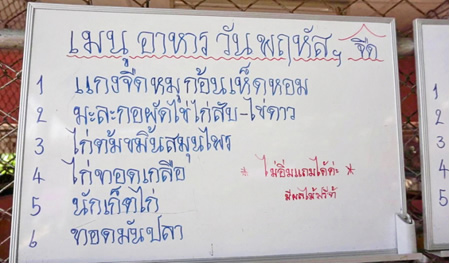 เมนู อาหาร วัน พฤหัสฯ จืด
1 แกงจืดหมูก้อนเห็ดหอม
2 มะละกอผัดไข่ไก่สับ-ไข่ดาว
3 ไก่ต้มขมิ้นสมุนไพร
4 ไก่ทอดเกลือ
* ไม่อิ่มแถมได้ค่ะ *
5 นักเก็ตไก่
มีผลไม้ฟรีจ้า
6 ทอดมันปลา